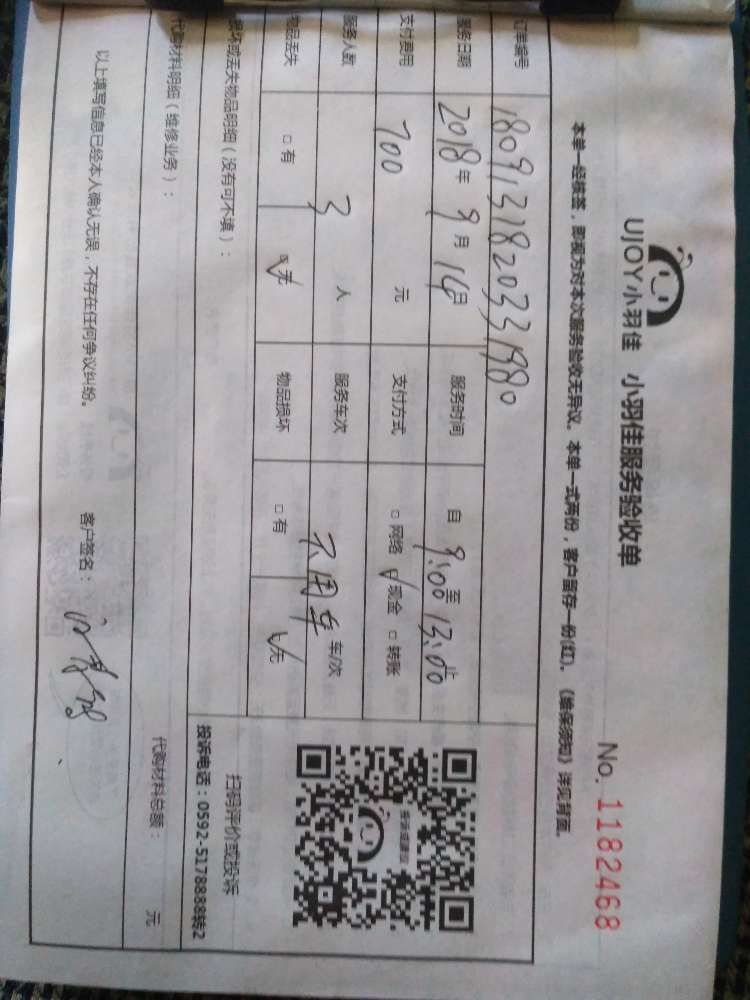 UJOY小羽佳 小羽佳服务验收单
No. 1182468
本单一经核签，即视为对本次服务验收无异议。本单一式两份，客户留存一份(红)。《维保须知》详见背面。
订单编号 1809131820331980
服务日期 2018年9月16日 服务时间 自9:00至13:00止
支付费用 700元 支付方式 □网络 ☑现金 □转账
服务人数 3人 服务车次 不用车 车/次
物品丢失 □有 ☑无 物品损坏 □有 ☑无
损坏或丢失物品明细（没有可不填）：
扫码评价或投诉
投诉电话：0592-5178888转2
代购材料明细（维修业务）：
代购材料总额： 元
以上填写信息已经本人确认无误，不存在任何争议纠纷。
客户签名：